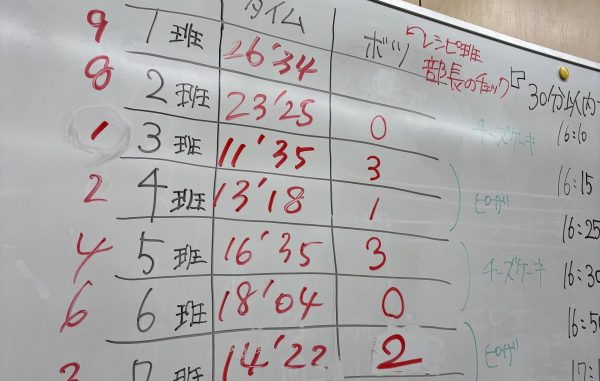 タイム ボツ
レシピ班
部長のチェック
30分以内
9 1班 26'34
8 2班 23'25 0 チーズケーキ 16:10
1 3班 11'35 3 16:15
2 4班 13'18 1 ピザ 16:25
4 5班 16'35 3 チーズケーキ 16:30
6 6班 18'04 0 16:5
3 7班 14'22 2 ピザ 17: